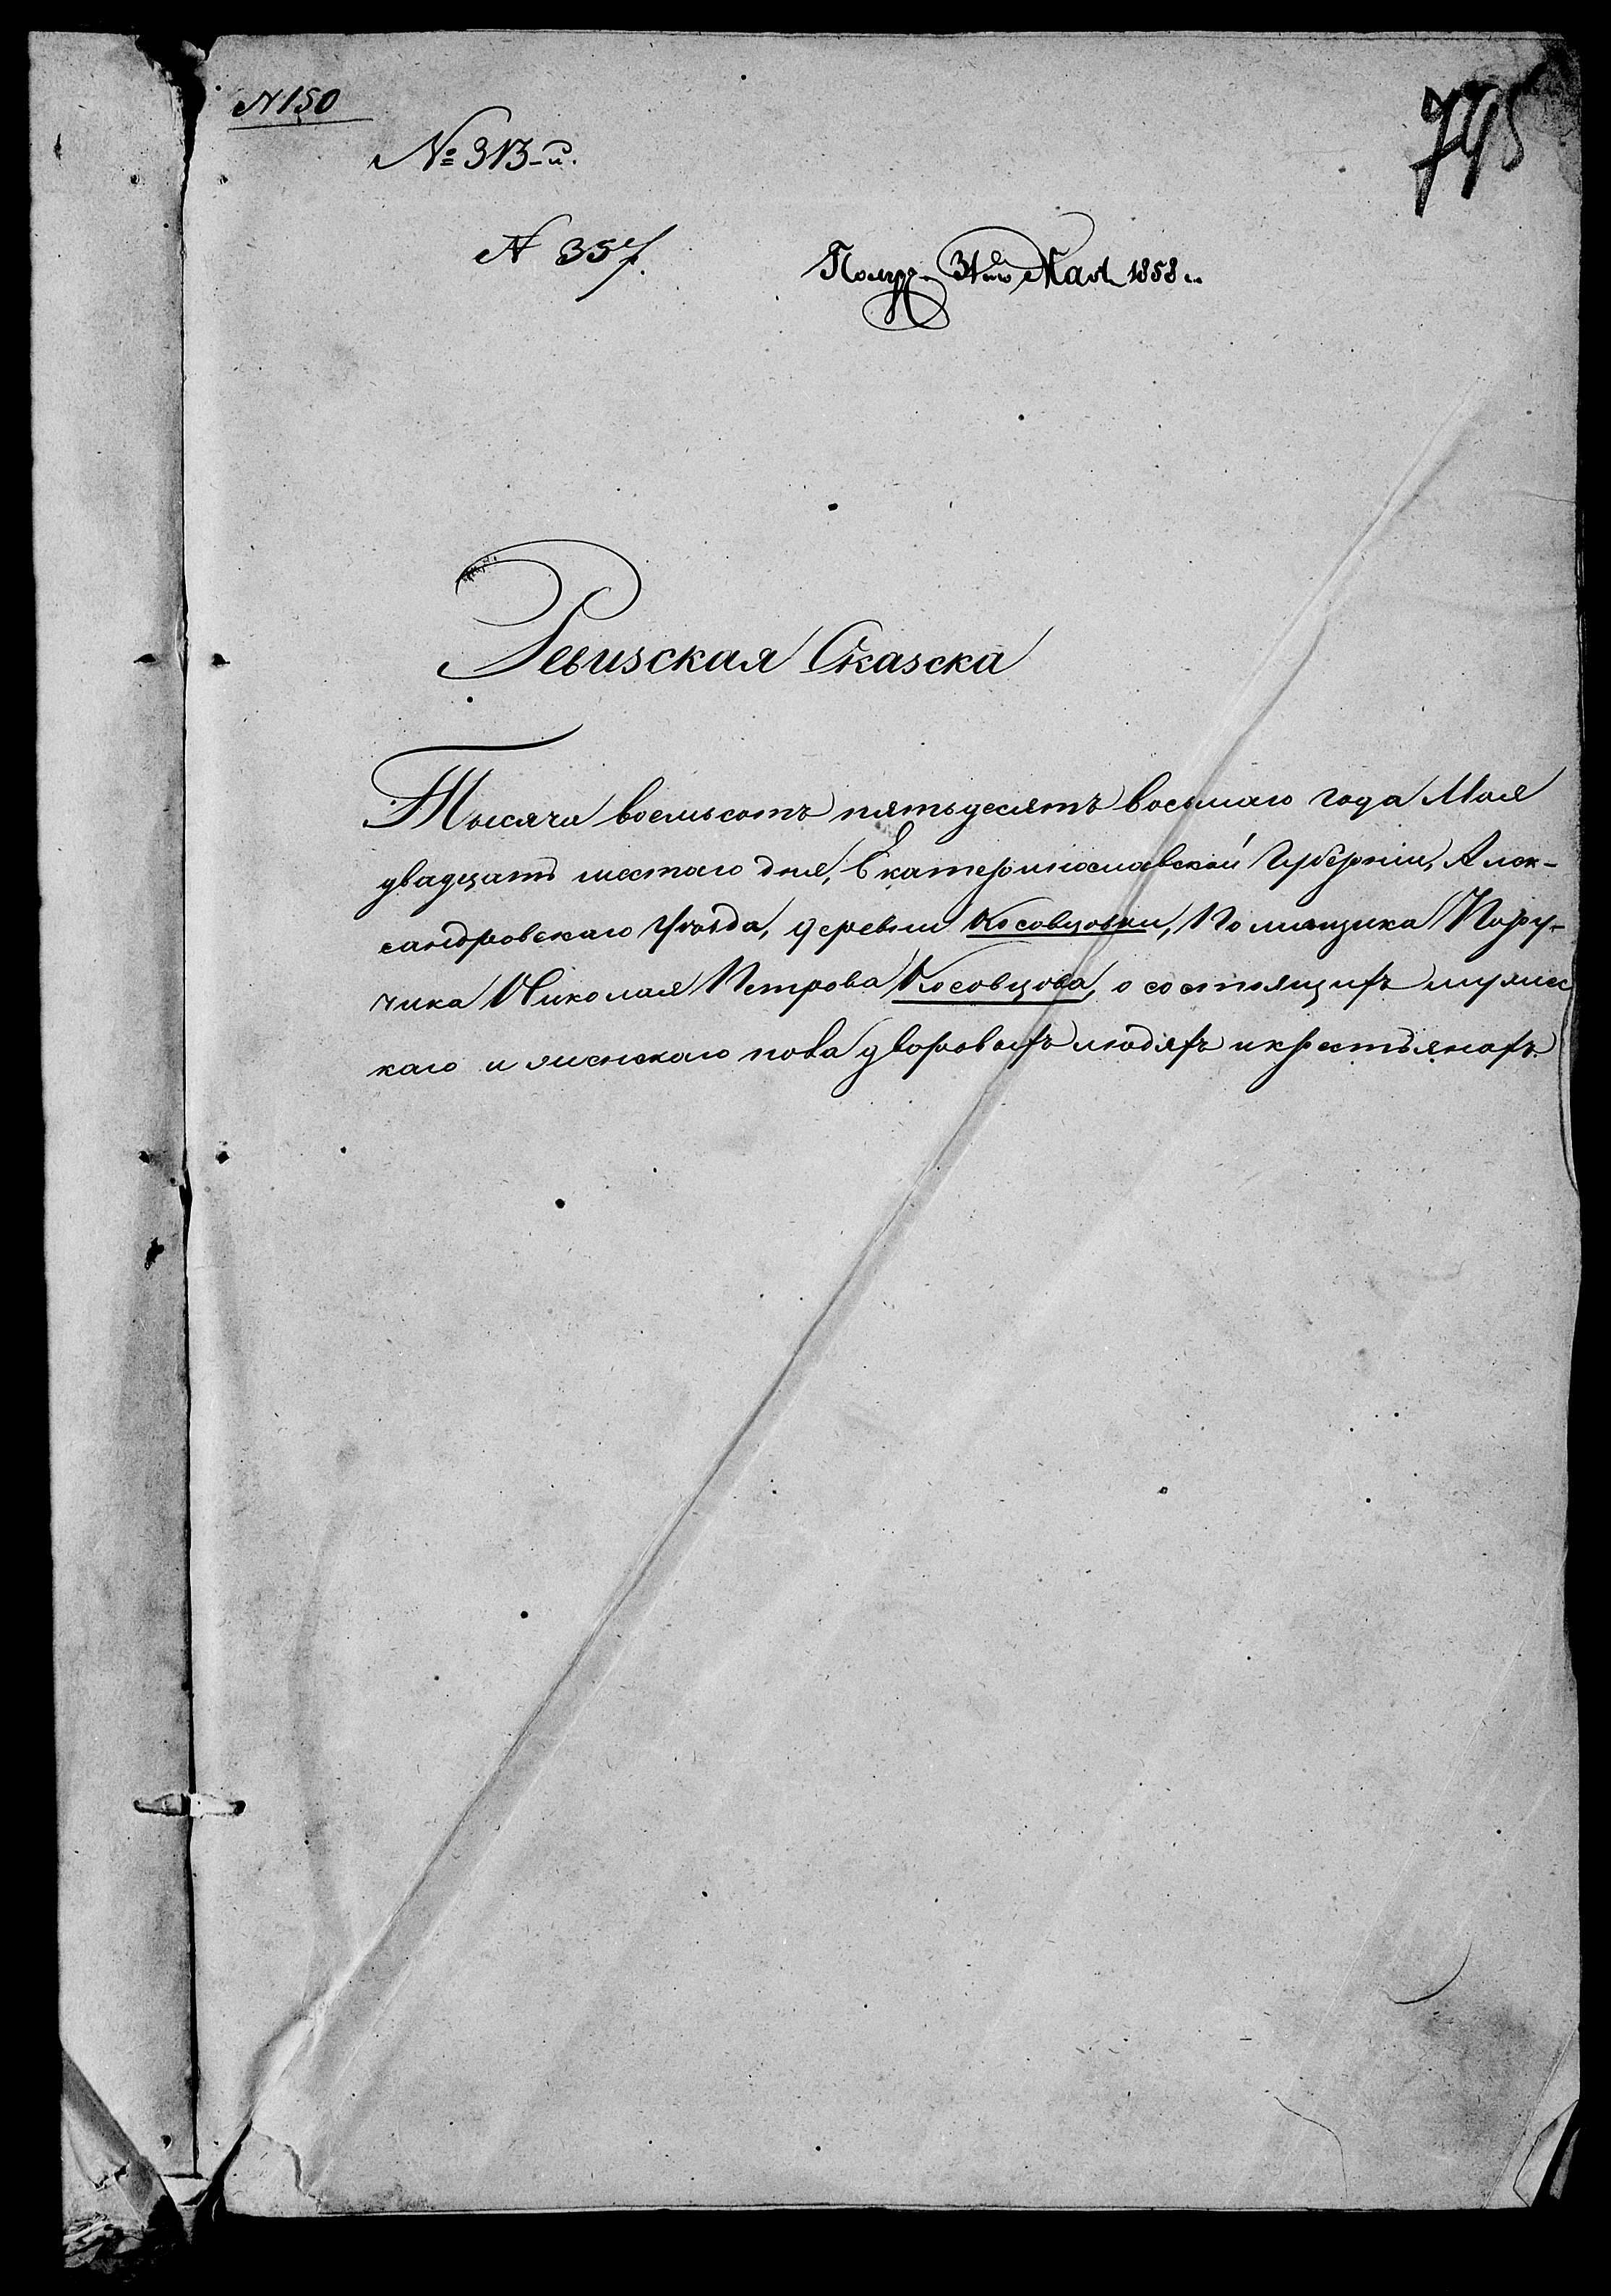 N 150
№ 313-й.
795
N 357.
Получ. 31го Мая 1858 г.
Ревизская Сказка
Тысяча восемьсотъ пятьдесятъ восьмаго года Мая
двадцать шестаго дня, Екатеринославской Губерніи, Алек-
сандровскаго Уѣзда, деревни Косовцовки, Помѣщика Пору-
чика Николая Петрова Косовцова, о состоящихъ мужес
каго и женскаго пола дворовыхъ людяхъ и крестьянахъ.